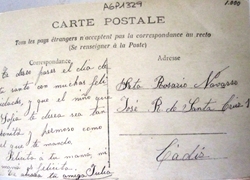 A6P1329
1.000
CARTE POSTALE
Tous les pays étrangers n'acceptent pas la correspondance au recto
(Se renseigner à la Poste)
Correspondance
Adresse
Te deseo pases el día de
tu santo con muchas feli
y que el niño que
Sofia te diera sea tan
bonito y hermoso como
el que te mando
Felicita à tu mamá, mi
te felicita.
tu amiga Julia
Srta Rosario Navarro
José R. de Santa Cruz
Cádiz